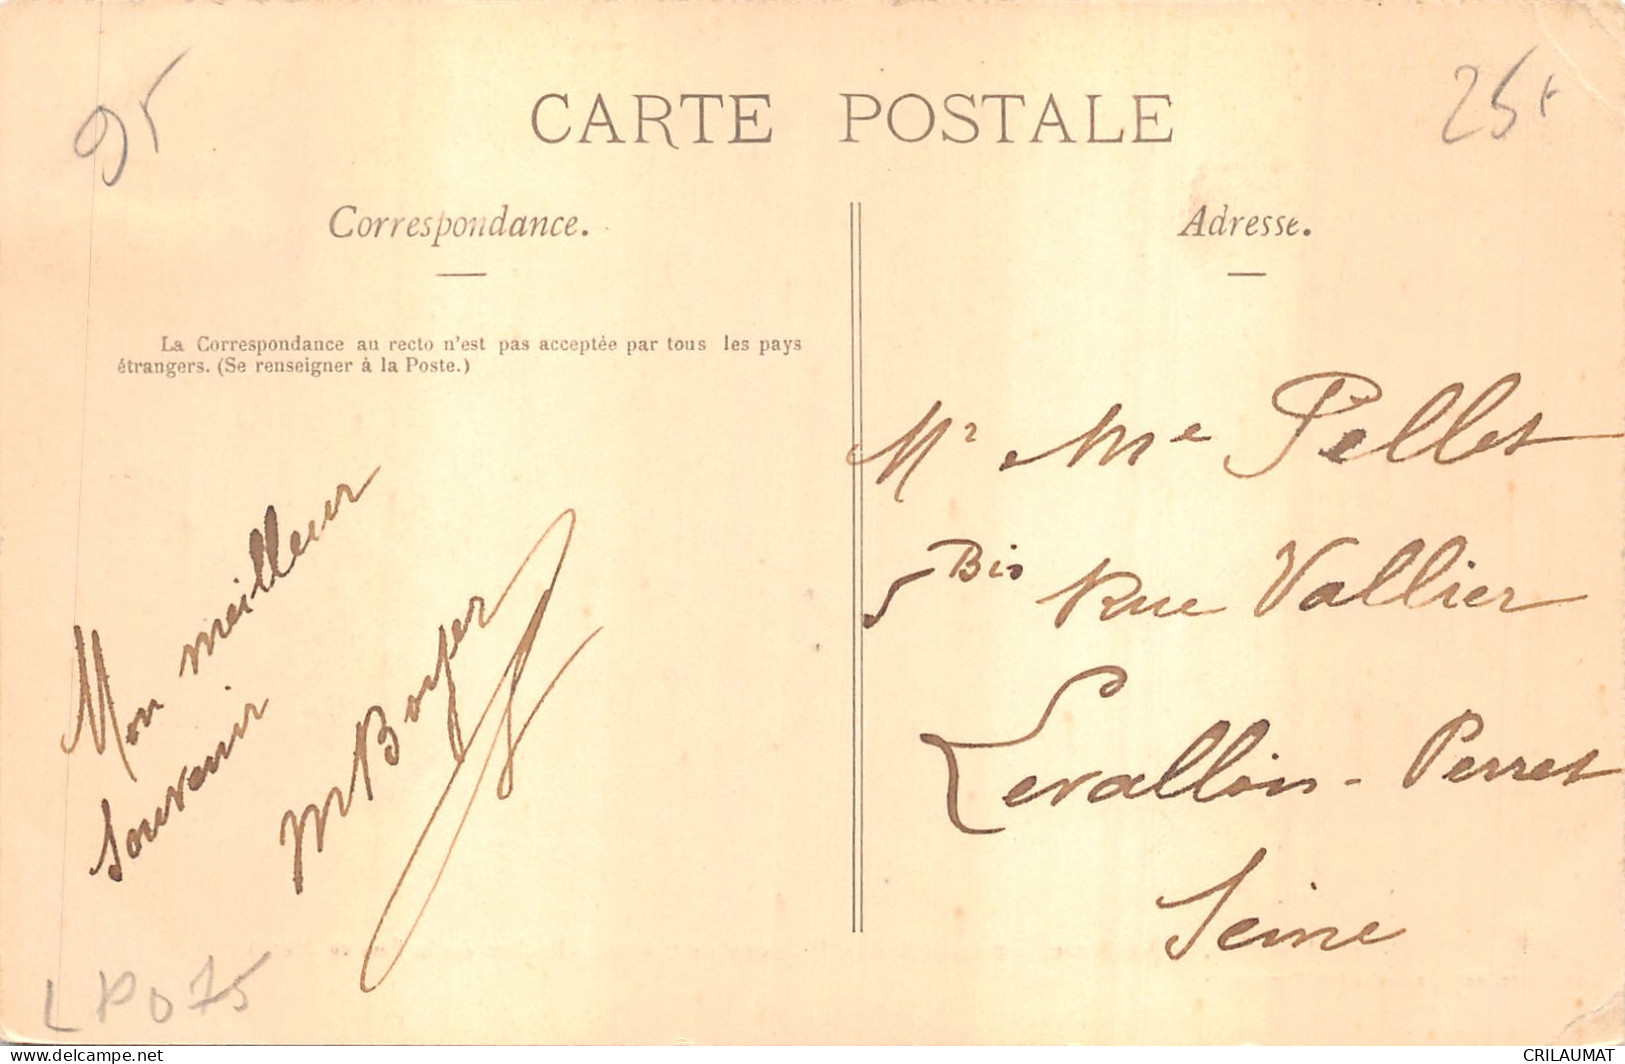 95
25+
CARTE POSTALE
Correspondance.
Adresse.
La Correspondance au recto n'est pas acceptée par tous les pays
étrangers. (Se renseigner à la Poste.)
Mon meilleur
souvenir
M Boyer
Mr Me Pellet
5 Bis Rue Vallier
Levallois-Perret
Seine
LP075
www.delcampe.net
CRILAUMAT